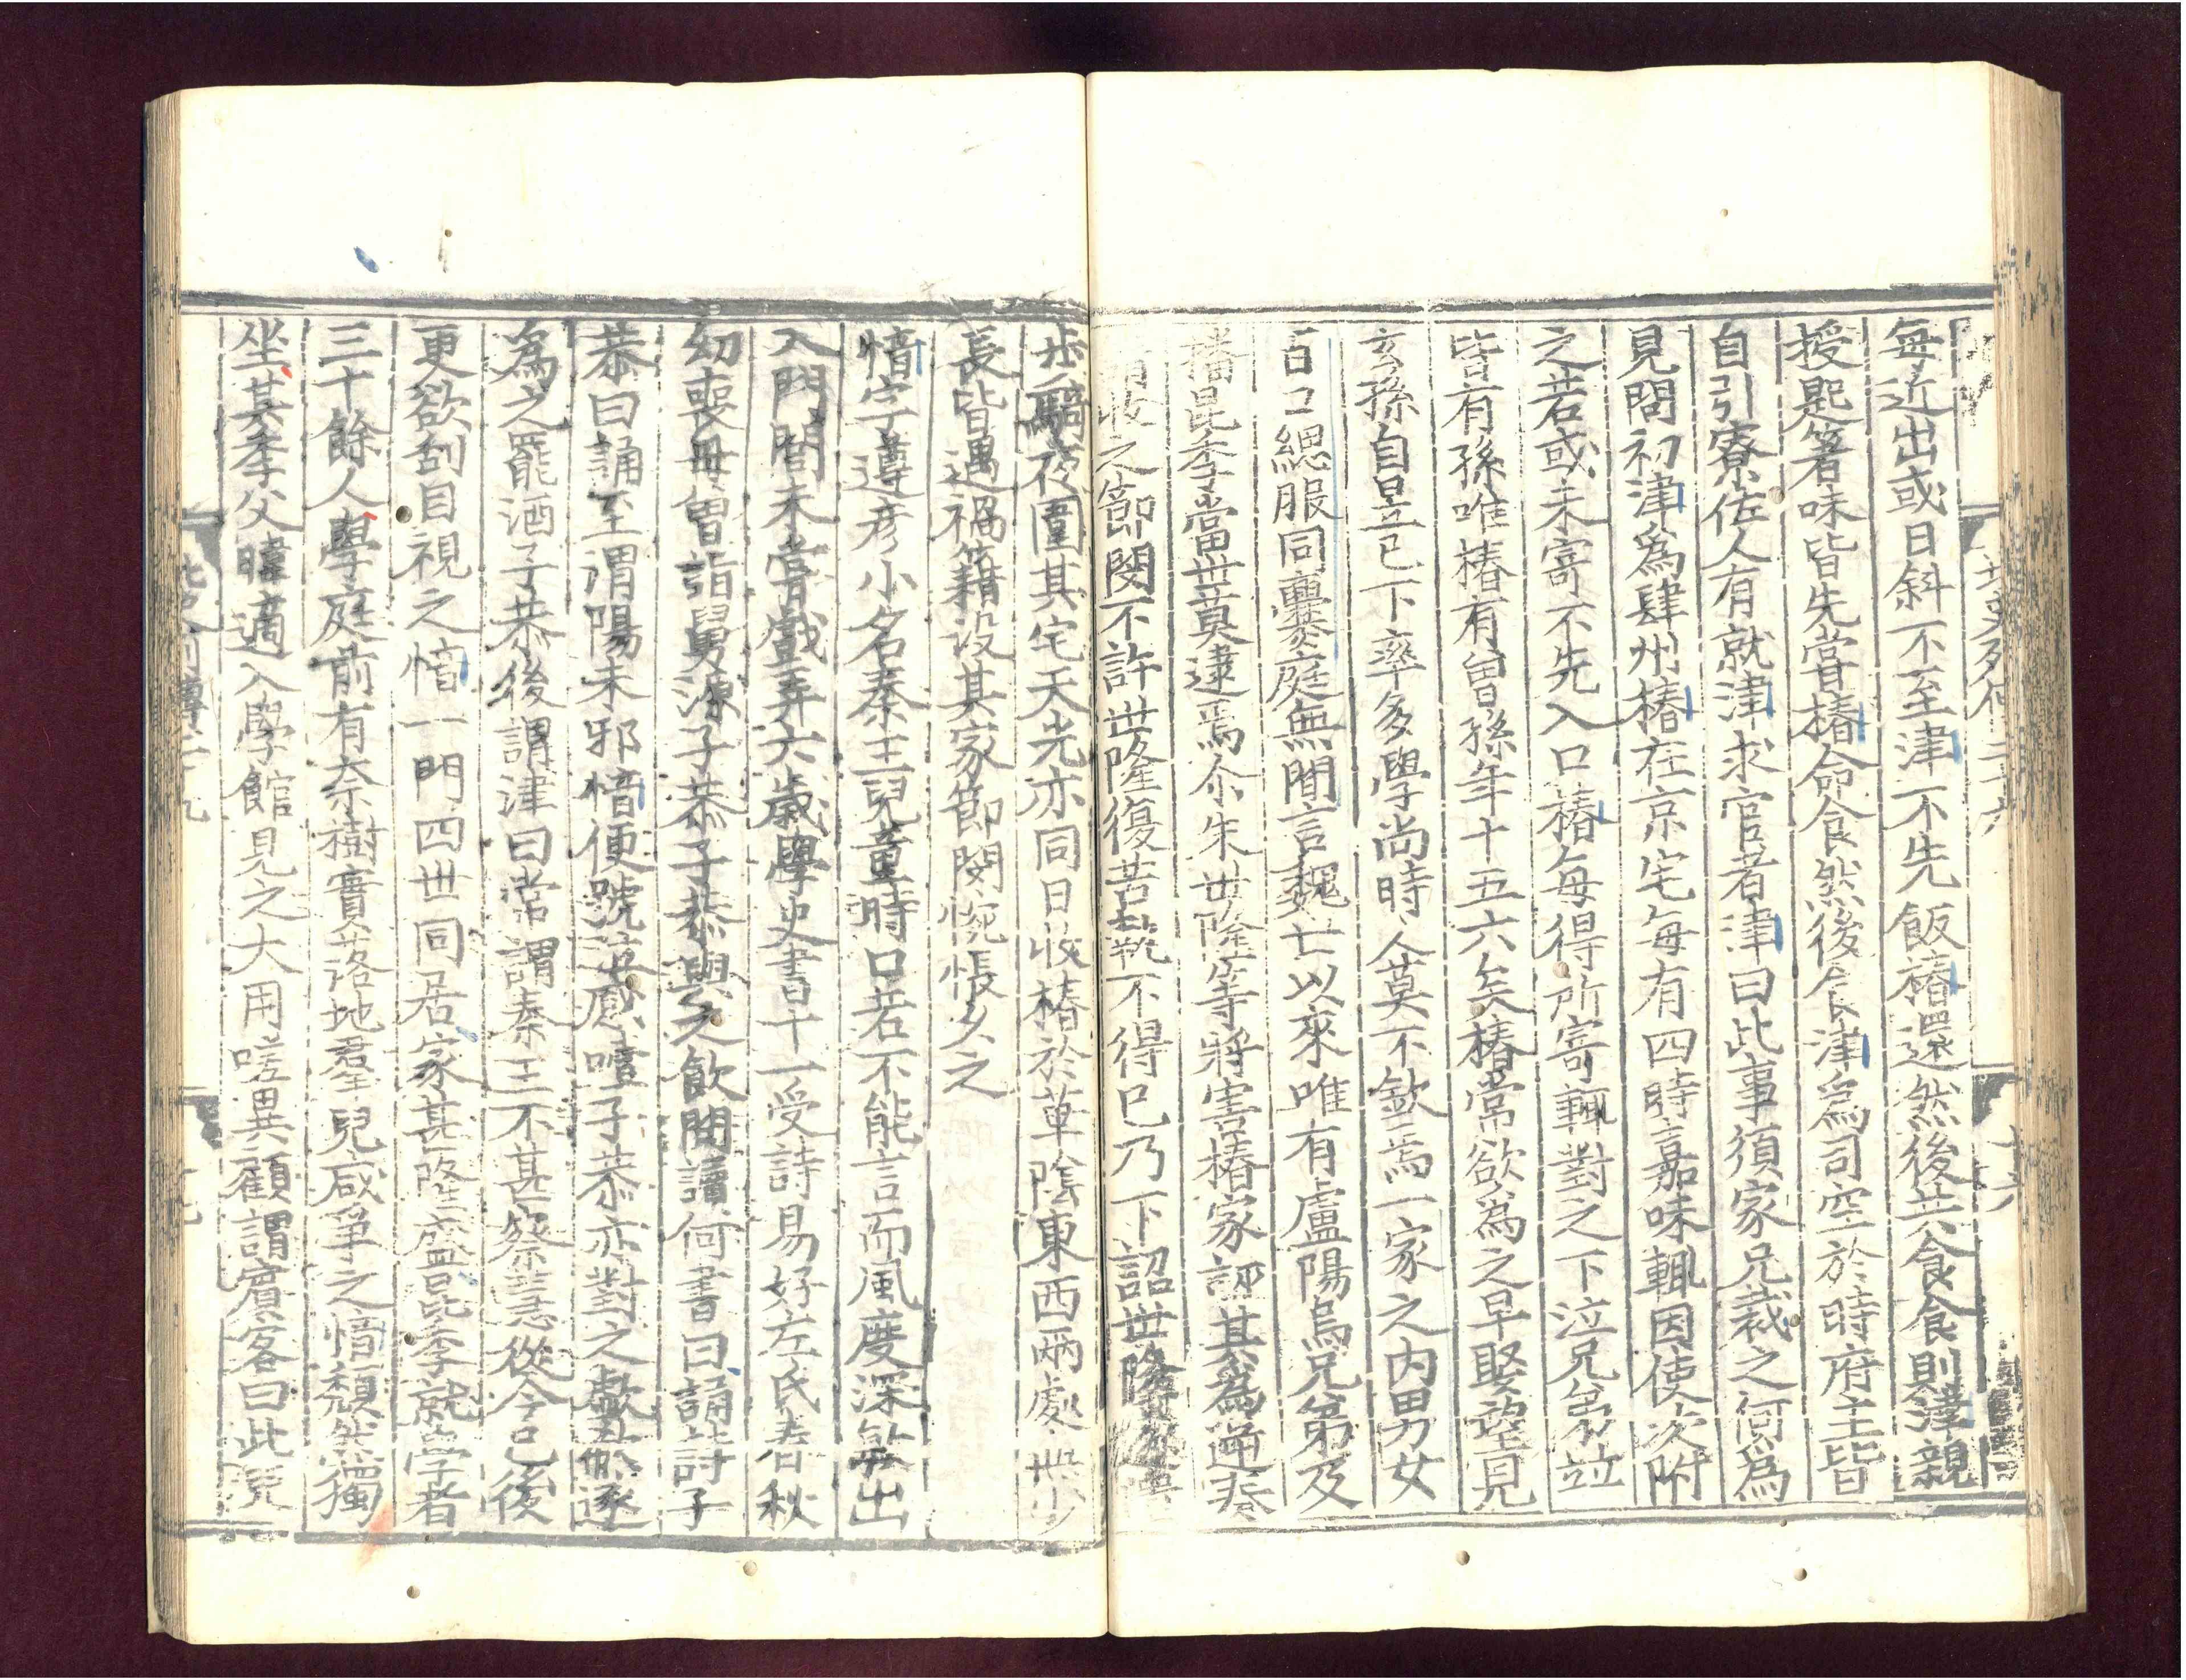 每近出或日斜不至津不先飯椿還然後共食食則津親
授匙箸味皆先嘗椿命食然後食津爲司空於時府主皆
自引寮佐人有就津求官者津曰此事須家兄裁之何爲
見問初津爲肆州椿在京宅每有四時嘉味輒因使次附
之若或未寄不先入口椿每得所寄輒對之下泣兄弟並
皆有孫唯椿有曾孫年十五六矣椿常欲爲之早娶望見
玄孫自昱已下率多學尚時人莫不欽焉一家之内男女
百口緦服同爨庭無間言魏世以來唯有盧陽烏兄弟及
播昆季當世莫逮焉尒朱世隆等將害椿家誣其爲逆奏
收之節閔不許世隆復苦執不得已乃下詔世隆
步騎夜圍其宅天光亦同日收椿於華陰東西兩處無少
長皆遇禍籍没其家節閔惋悵久之
愔字遵彦小名秦王兒童時口若不能言而風度深敏出
入門閭未嘗戲弄六歲學史書十一受詩易好左氏春秋
幼喪母曾詣舅源子恭子恭與之飲問讀何書曰誦詩子
恭曰誦至渭陽未邪愔便號泣感噎子恭亦對之歔欷遂
爲之罷酒子恭後謂津曰常謂秦王不甚察慧從今已後
更欲刮目視之愔一門四世同居家甚隆盛昆季就學者
三十餘人學庭前有柰樹實落地羣兒咸争之愔頹然獨
坐其季父暐適入學館見之大用嗟異顧謂賓客曰此児